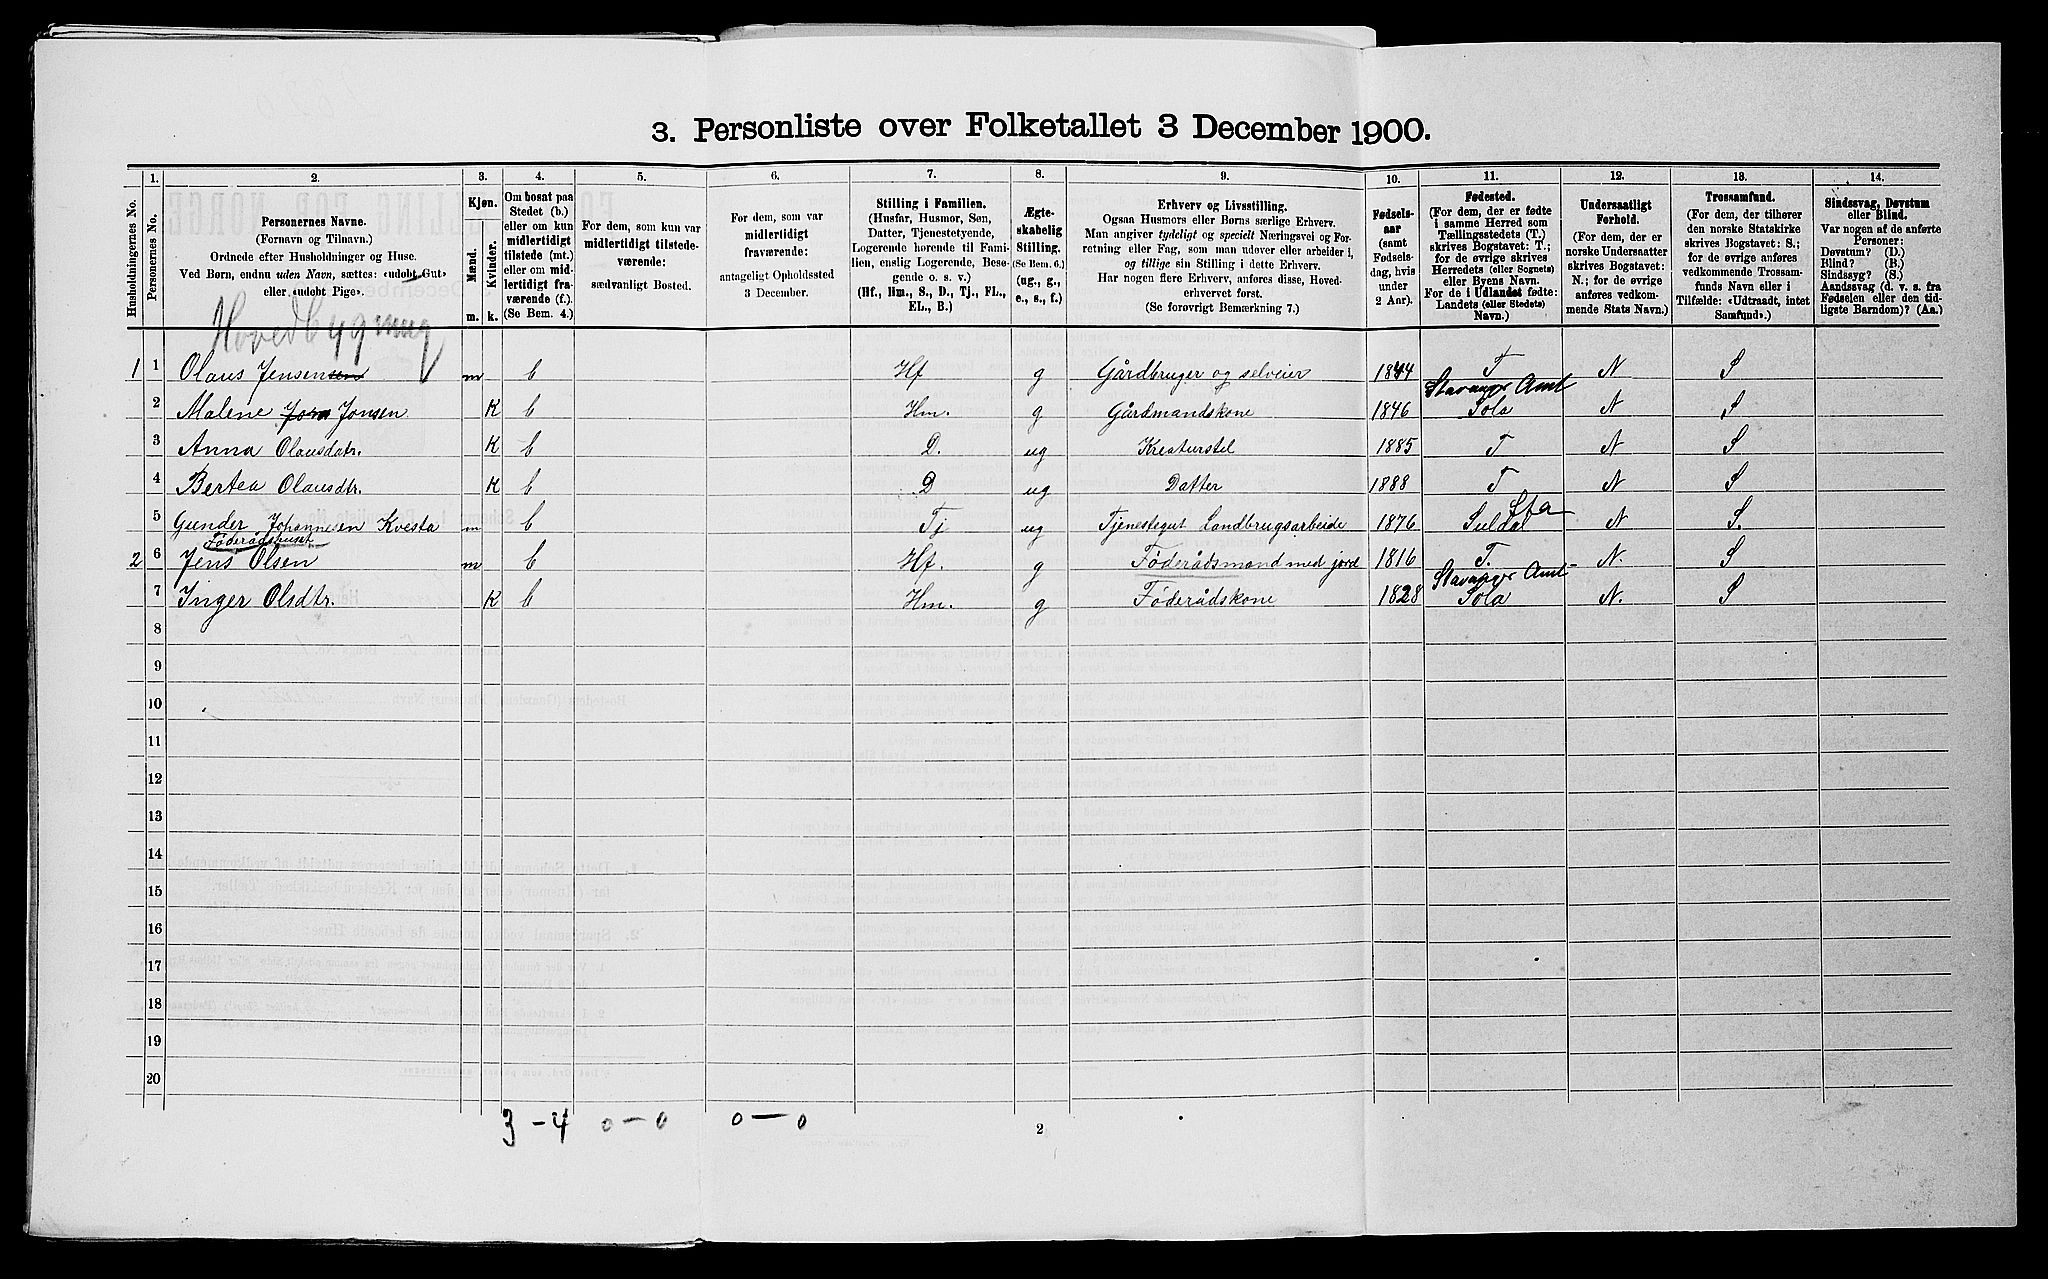 3. Personliste over Folketallet 3 December 1900.
Husholdningernes No.
1.
Personernes No.
2.
Personernes Navne.
(Fornavn og Tilnavn.)
Ordnede efter Husholdninger og Huse.
Ved Børn, endnu uden Navn, sættes: «udøbt Gut»
eller «udøbt Pige».
3.
Kjøn.
Mænd.
Kvinder.
m.
k.
4.
Om bosat paa
Stedet (b.)
eller om kun
midlertidigt
tilstede (mt.)
eller om mid-
lertidigt fra-
værende (f.).
(Se Bem. 4.)
5.
For dem, som kun var
midlertidigt tilstede-
værende:
sædvanligt Bosted.
6.
For dem, som var
midlertidigt
fraværende:
antageligt Opholdssted
3 December.
7.
Stilling i Familien.
(Husfar, Husmor, Søn,
Datter, Tjenestetyende,
Logerende hørende til Fami-
lien, enslig Logerende, Besø-
gende o. s. v.)
(Hf., Hm., S., D., Tj., FL.,
EL., B.)
8.
Ægte-
skabelig
Stilling.
(Se Bem. 6.)
(ug., g.,
e., s., f.)
9.
Erhverv og Livsstilling.
Ogsaa Husmors eller Børns særlige Erhverv.
Man angiver tydeligt og specielt Næringsvei og For-
retning eller Fag, som man udøver eller arbeider i,
og tillige sin Stilling i dette Erhverv.
Har nogen flere Erhverv, anføres disse, Hoved-
erhvervet først.
(Se forøvrigt Bemærkning 7.)
10.
Fødsels-
aar
(samt
Fødsels-
dag, hvis
under
2 Aar).
11.
Fødested.
(For dem, der er fødte
i samme Herred som
Tællingsstedets (T.)
skrives Bogstavet: T.;
for de øvrige skrives
Herredets (eller Sognets)
eller Byens Navn.
For de i Udlandet fødte:
Landets (eller Stedets)
Navn.)
12.
Undersaatligt
Forhold.
(For dem, der er
norske Undersaatter
skrives Bogstavet:
N.; for de øvrige
anføres vedkom-
mende Stats Navn.)
13.
Trossamfund.
(For dem, der tilhører
den norske Statskirke
skrives Bogstavet: S.;
for de øvrige anføres
vedkommende Trossam-
funds Navn eller i
Tilfælde: «Udtraadt, intet
Samfund».)
14.
Sindssvag, Døvstum
eller Blind.
Var nogen af de anførte
Personer:
Døvstum? (D.)
Blind? (B.)
Sindssyg? (S.)
Aandssvag (d. v. s. fra
Fødselen eller den tid-
ligste Barndom)? (Aa.)
Hovedbygning
1 1 Olaus Jensensen m b Hf g Gårdbruger og selveier 1844 T N S
Stavanger Amt
2 Malene Jonsen K b Hm. g Gårdmandskone 1846 Sola N S
3 Anna Olausdatr. K b D. ug Kreaturstel 1885 T N S
4 Bertea Olausdtr. K b D ug Datter 1888 T N S
Sta
5 Gunder Johannesen Kvesta m b Tj ug Tjenestegut Landbrugsarbeide 1876 Suldal N S.
Føderådshuset
2 6 Jens Olsen m b Hf. g Føderådsmand med jord 1816 T. N. S
Stavanger Amt
7 Inger Olsdtr. K b Hm. g Føderådskone 1828 Sola N. S
8
9
10
11
12
13
14
15
16
17
18
19
20
3 - 4 0 - 0 0 - 0
2